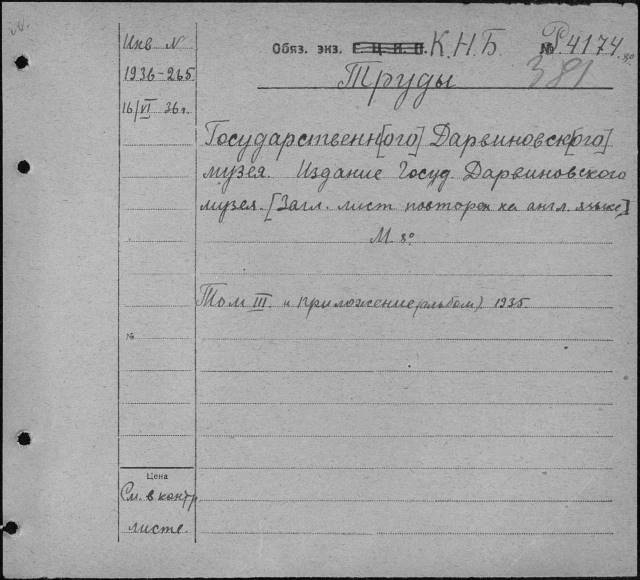 Инв N
1936-265
16/VI 36г.
Обяз. экз. К.Н.Б. № P4174.80
381
Труды
Государственн[ого] Дарвиновск[ого]
музея. Издание Госуд. Дарвиновского
музея. [Загл. лист повторен на англ. языке]
М. 8°
Том III. и приложение (альбом) 1935
№
Цена
См. в контр
листе.